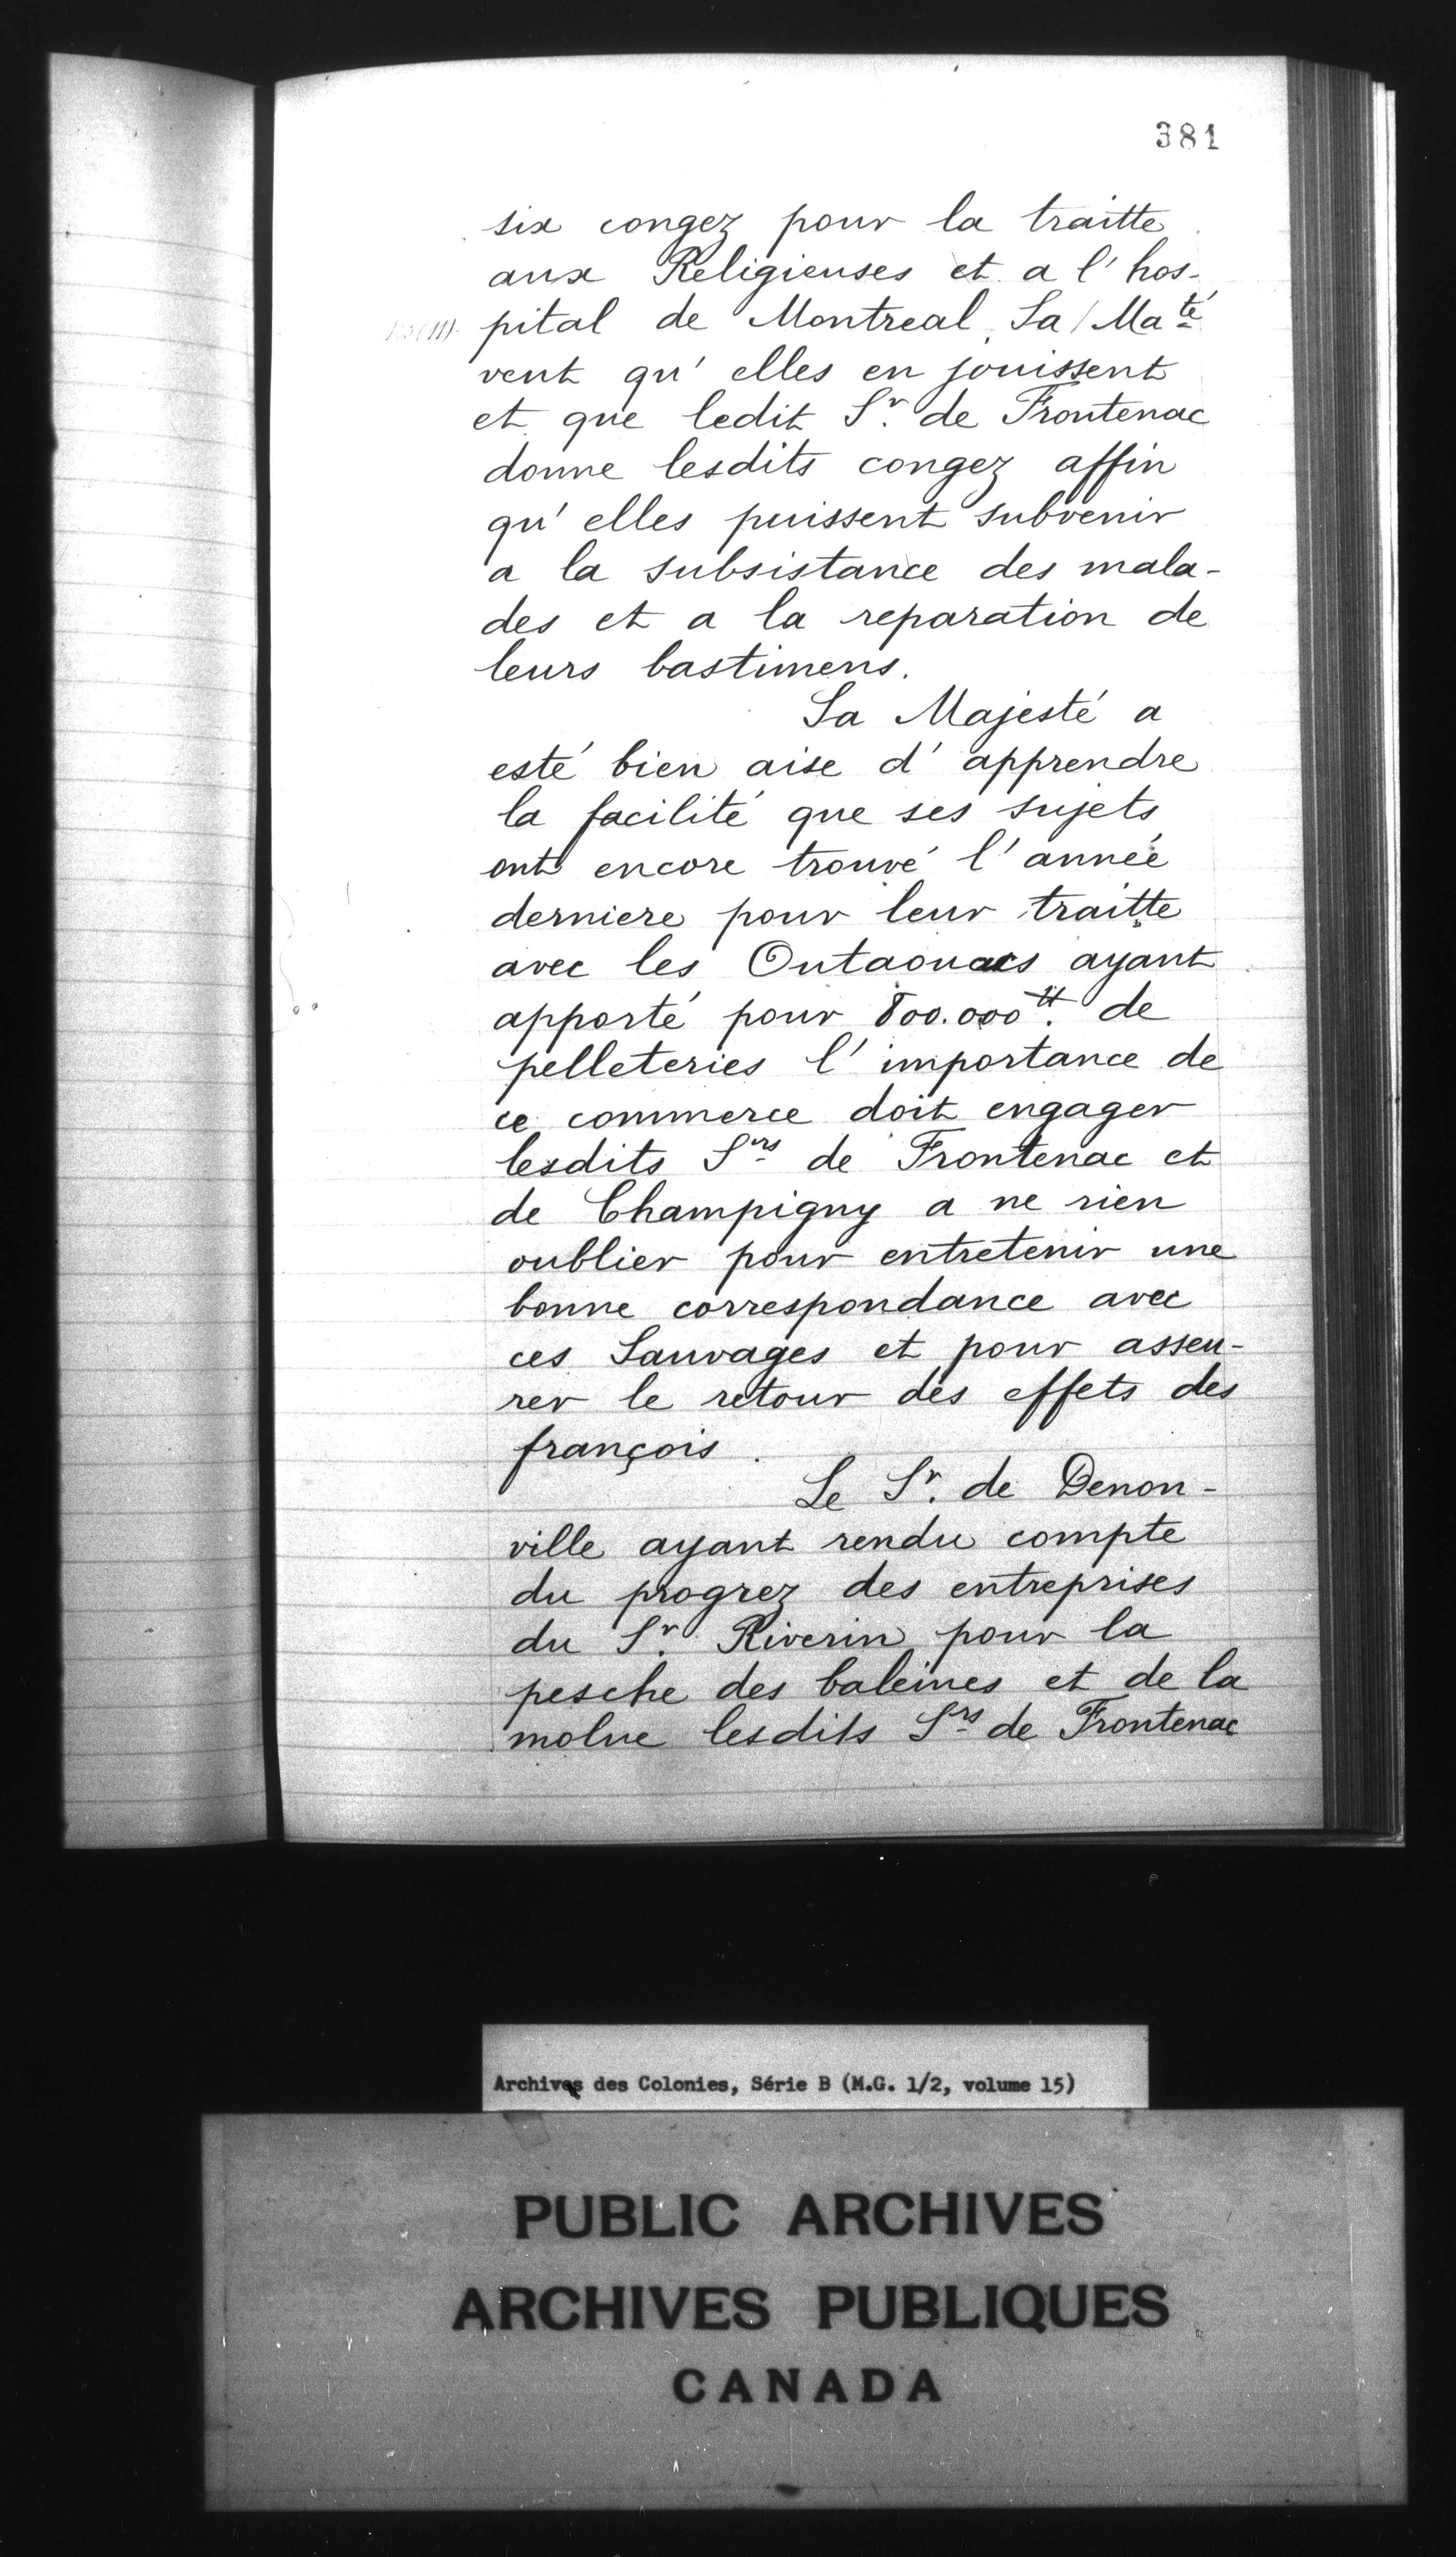 381
six congez pour la traitte
aux Religieuses et a l'hos-
pital de Montreal, Sa Ma^té
veut qu'elles en jouissent
et que ledit S^r. de Frontenac
donne lesdits congez affin
qu'elles puissent subvenir
a la subsistance des mala-
des et a la reparation de
leurs bastimens.
Sa Majesté a
esté bien aise d'apprendre
la facilité que ses sujets
ont encore trouvé l'année
derniere pour leur traitte
avec les Outaouacs ayant
apporté pour 800.000^tt. de
pelleteries l'importance de
ce commerce doit engager
lesdits S^rs de Frontenac et
de Champigny a ne rien
oublier pour entretenir une
bonne correspondance avec
ces Sauvages et pour asseu-
rer le retour des effets des
françois.
Le S^r. de Denon-
ville ayant rendu compte
du progrez des entreprises
du S^r. Riverin pour la
pesche des baleines et de la
molue lesdits S^rs de Frontenac
Archives des Colonies, Série B (M.G. 1/2, volume 15)
PUBLIC ARCHIVES
ARCHIVES PUBLIQUES
CANADA